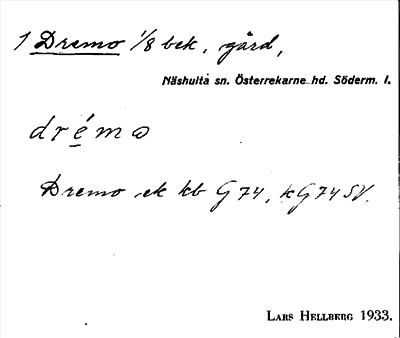 1 Dremo 1/8 bek, gård,
Näshulta sn. Österrekarne hd. Söderm. l.
drémo
Dremo ek kb G 74, kG 74 SV.
LARS HELLBERG 1933.